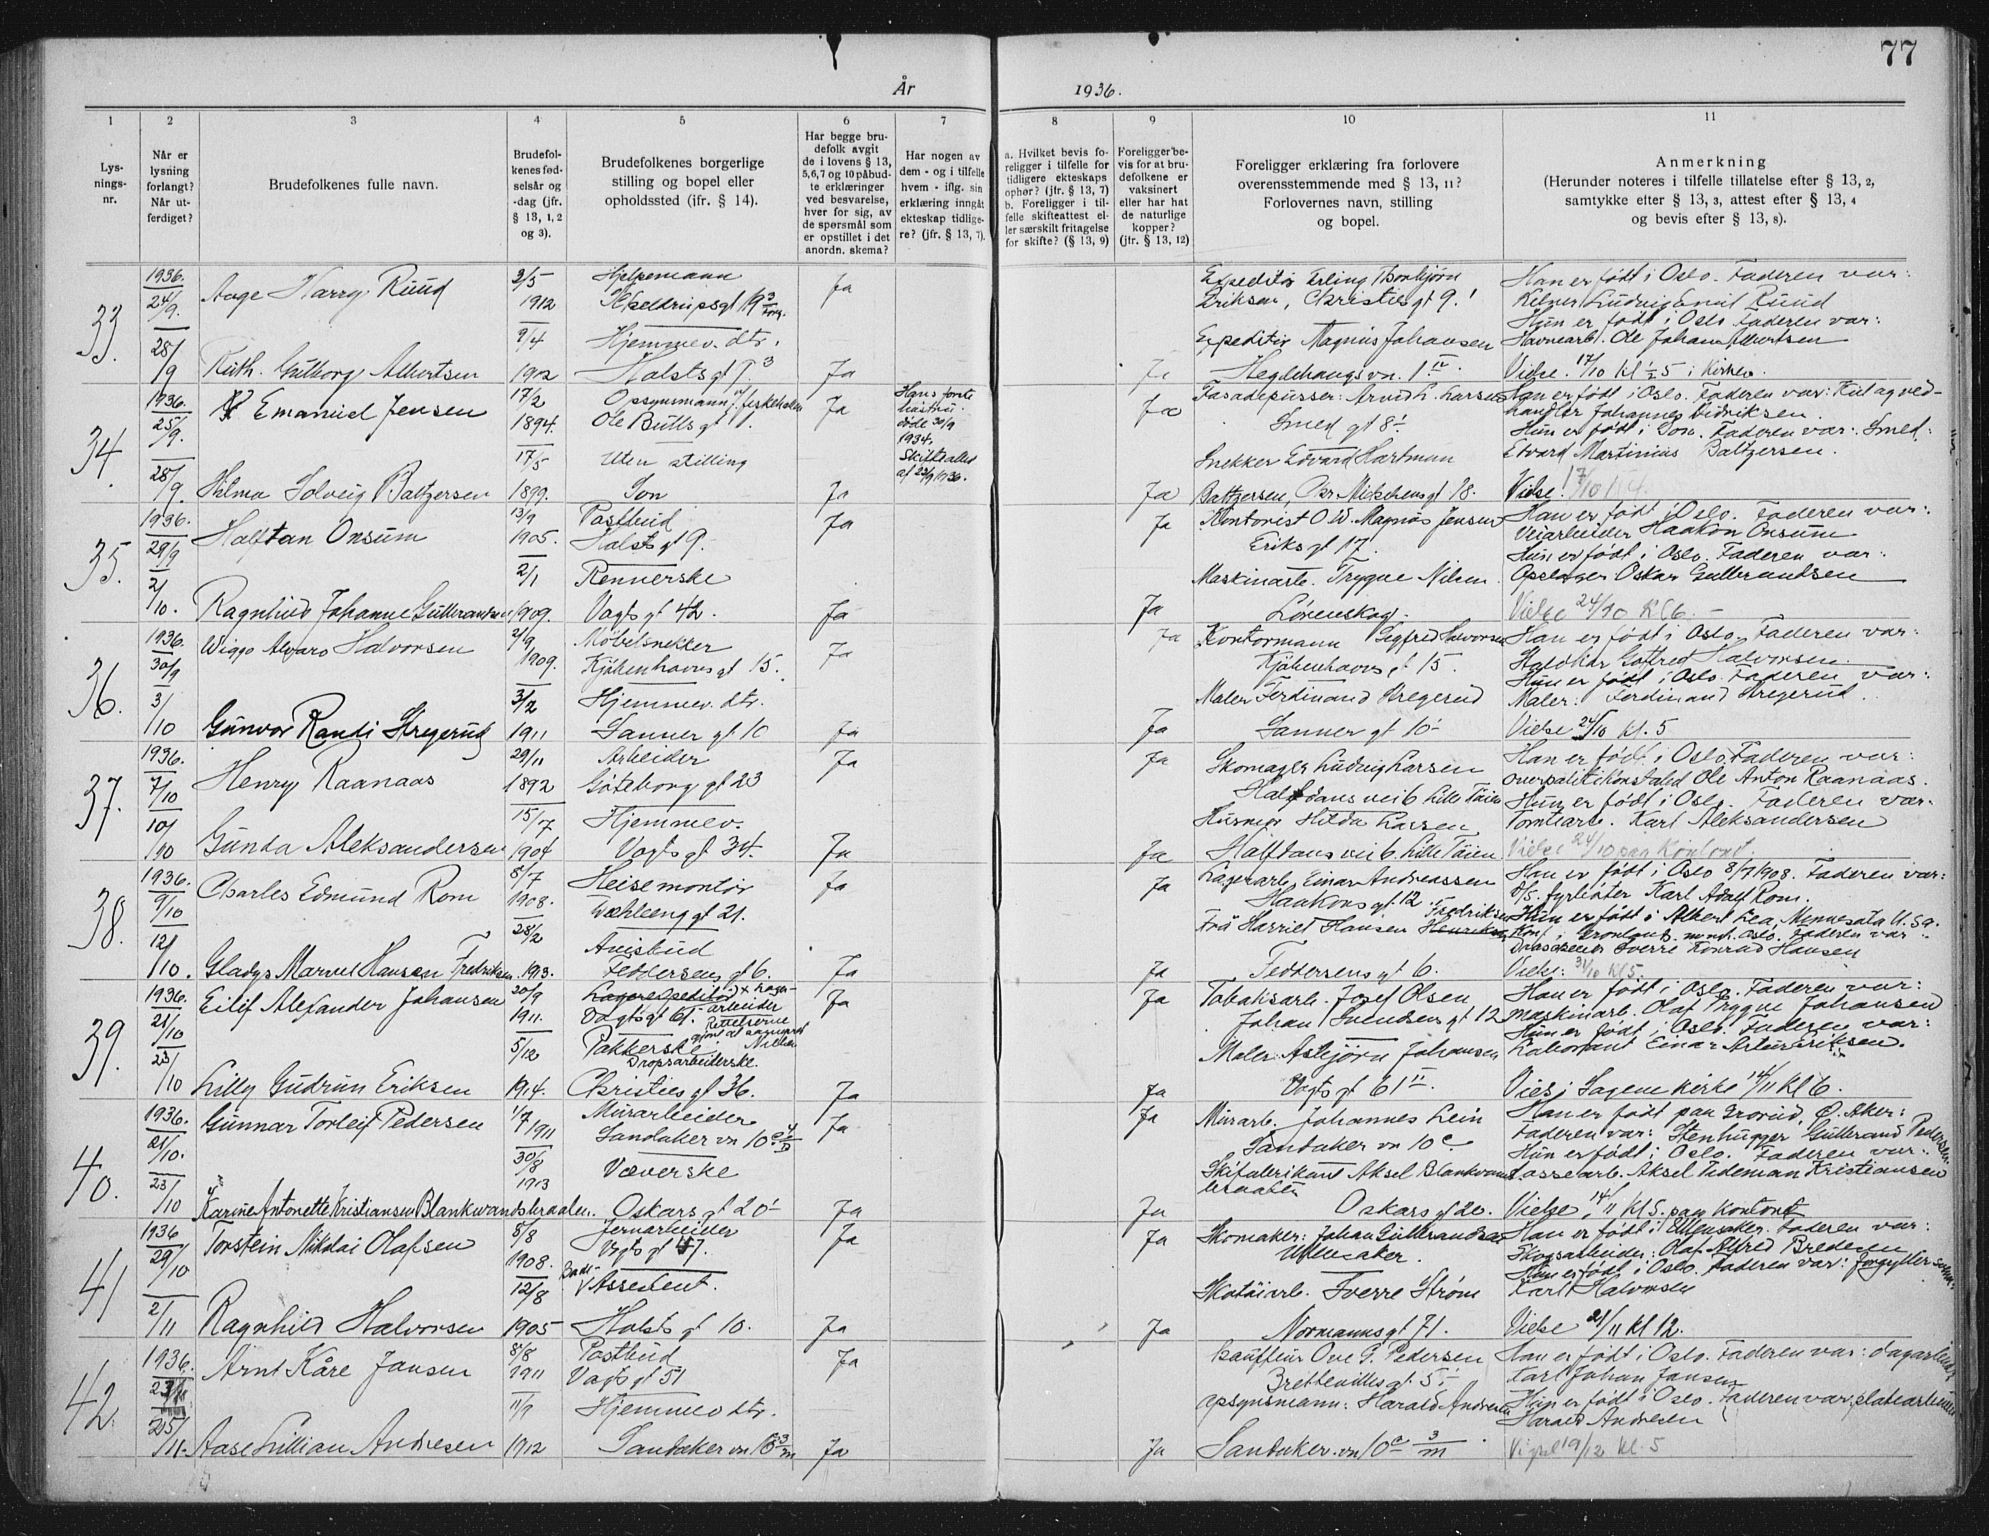 77
År 1936.
1 2 3 4 5 6 7 8 9 10 11
Lys-
nings-
nr.
Når er
lysning
forlangt?
Når ut-
ferdiget?
Brudefolkenes fulle navn.
Brudefol-
kenes fød-
selsår og
-dag (jfr.
§ 13, 1, 2
og 3).
Brudefolkenes borgerlige
stilling og bopel eller
opholdssted (jfr. § 14).
Har begge bru-
defolk avgit
de i lovens § 13,
5, 6, 7 og 10 påbud-
te erklæringer
ved besvarelse,
hver for sig, av
de spørsmål som
er opstillet i det
anordn. skema?
Har nogen av
dem - og i tilfelle
hvem - iflg. sin
erklæring inngåt
ekteskap tidlige-
re? (jfr. § 13, 7).
a. Hvilket bevis fo-
religger i tilfelle for
tidligere ekteskaps
ophør? (jfr. § 13, 7)
b. Foreligger i til-
felle skifteattest el-
ler særskilt fritagelse
for skifte? (§ 13, 9)
Foreligger be-
vis for at bru-
defolkene er
vaksinert
eller har hat
de naturlige
kopper?
(jfr. § 13, 12)
Foreligger erklæring fra forlovere
overensstemmende med § 13, 11?
Forlovernes navn, stilling
og bopel.
Anmerkning
(Herunder noteres i tilfelle tillatelse efter § 13, 2,
samtykke efter § 13, 3, attest efter § 13, 4
og bevis efter § 13, 8).
33.
1936.
24/9.
28/9
Aage Harry Ruud
3/5
1912
Hjelpemann
Ja
Expeditør Erling Thorbjørn
Eriksen, Christies gt 9.
Han er født i Oslo. Faderen var:
Kelner Ludvig Emil Ruud
Ruth Gulborg Albertsen
9/4
1912
Hjemmev. dtr.
Holsts gt 9 3
Ja
Expeditør Magnus Johansen
Heglehaugs vn. 1 IV
Hun er født i Oslo. Faderen var:
Havnearb. Ole Johan Albertsen
Vielse 17/10 kl ½ 5 i Kirken.
34.
1936.
25/9.
28/9.
Emanuel Jensen
17/2
1894.
Opsynsmann
Ole Bulls gt
Ja
Hans første
hustru
døde 30/9
1934.
Ja
Fasadepusser: Arvid L. Larsen
Smed gt 8
Han er født i Oslo. Faderen var: Kul og ved-
handler Johannes Didriksen.
Hilma Solveig Baltzersen
17/5
1899.
Uten stilling
Son
Ja
Ja
Snekker Edvard Hartman
Baltzersen, Chr Michelsens gt 18.
Hun er født i Son. Faderen var: Smed:
Edvard Martinius Baltzersen.
Vielse. 17/10
35.
1936.
29/9
2/10.
Halfdan Onsum
13/9
1905.
Postbud
Holsts gt 9.
Ja
Ja
Kontorist O W. Magnus Jensen
Eriks gt 17.
Han er født i Oslo. Faderen var:
Veiarbeider Haakon Onsum
Ragnhild Johanne Gulbrandsen
2/1
1909.
Rennerske
Vogts gt 42.
Ja
Ja
Maskinarb. Trygve Nilsen.
Lørenskog.
Hun er født i Oslo. Faderen var:
Opslager Oskar Gulbrandsen
Vielse 24/10 kl 6.
36.
1936.
30/9
3/10
Wiggo Alvaro Halvorsen
2/9
1909.
Møbelsnekker
Kjøbenhavns gt 15.
Ja
Ja
Kontormann Sigfred Halvorsen
Kjøbenhavns gt 15.
Han er født i Oslo. Faderen var:
Gotfred Halvorsen.
Gunvor Randi Stregerud
3/2
1911
Hjemmev. dtr.
Sanner gt 10
Ja
Ja
Maler Ferdinand Stregerud
Sanner gt 10
Hun er født i Oslo. Faderen var:
Maler: Ferdinand Stregerud.
Vielse 24/10 kl. 5
37.
1936.
7/10
10/10
Henry Raanaas
29/11
1892
Arbeider
Gøteborg gt 23
Ja
Ja
Skomager Ludvig Larsen
Halfdans vei 6 Lille Tøien
Han er født i Oslo. Faderen var:
Ole Anton Raanaas.
Gunda Aleksandersen
15/7
1904
Hjemmev.
Vogts gt 34.
Ja
Ja
Husmor Hilda Larsen
Halfdans vei 6. Lille Tøien
Hun er født i Oslo. Faderen var:
Tomtearb. Karl Aleksandersen
Vielse 24/10 paa Kontoret.
38.
1936.
9/10
12/10.
Charles Edmund Rom
8/7
1908.
Heisemontør
Wæhleens gt 21.
Ja
Ja
Lagerarb. Einar Andreassen
Haakons gt 12.
Han er født i Oslo 8/7 1908. Faderen var:
D/S. fyrbøter Karl Adolf Rom.
Gladys Marvel Hansen Fredriksen.
28/2
1913.
Avisbud
Feddersens gt 6.
Ja
Ja
Fru Harriet Hansen Henriksen Fredriksen
Feddersens gt 6.
Hun er født i Albert Lea, Minnesota U.S.A.
Konf. i Grønland men. Oslo. Faderen var:
Sverre Konrad Hansen
Vielse: 31/10 kl 5.
39.
1936.
21/10
23/10
Eilif Alexander Johansen
20/9
1911.
Lagerexpeditør x Lager-
arbeider
Vogts gt 61.
Rettelserne
Ja
Ja
Tobaksarb. Josef Olsen
Johan Svendsens gt 12
Han er født i Oslo. Faderen var:
maskinarb. Olaf Trygve Johansen
Lilly Gudrun Eriksen
5/12
1914.
Pakkerske.
Dropsarbeiderske.
Christies gt 36.
Ja
Ja
Maler: Asbjørn Johansen
Vogts gt 61 II.
Hun er født i Oslo. Faderen var:
Laborant Einar Artur Eriksen.
Vies i Sagene kirke 14/11 kl 6.
40.
1936.
21/10.
23/10
Gunnar Torleif Pedersen
1/7
1911
Murarbeider
Sandaker vn 10 c
Ja
Ja
Murarb. Johannes Lein
Sandaker vn 10 c
Han er født paa Grorud, Ø. Aker:
Faderen var: Stenhugger Gulbrand Pedersen.
Karine Antonette Kristiansen Blankvandsbraaten.
30/8
1913
Væverske
Oskars gt 20
Ja
Ja
Skifabrikant Aksel Blankvands-
braaten
Oskars gt 20.
Hun er født i Oslo. Faderen var:
Lossearb. Aksel Tideman Kristiansen
Vielse 14/11 kl 5. paa Kontoret
41
1936
29/10
2/11
Torstein Nikolai Olafsen
8/8
1908.
Jernarbeider
Vogts gt 57.
Ja
Ja
Skomaker: Johan Gulbrandsen
Ullensaker.
Han er født i Ullensaker. Faderen var:
Skogsarbeider: Olaf Alfred Bredesen
Ragnhild Halvorsen
12/8
1905
Bade-
Assistent.
Holsts gt 10.
Ja
Ja
Skotøiarb. Sverre Strøm
Normanns gt 71.
Hun er født i Oslo. Faderen var: Forgyllersvenn:
Karl Halvorsen
Vielse 21/11 kl 12.
42.
1936.
25/11.
Arnt Kåre Jansen
8/8
1911
Postbud
Vogts gt 51
Ja
Chauffeur Ove G. Pedersen
Bretteville gt 5.
Han er født i Oslo. Faderen var: dagarbeider
Karl Johan Jansen
Aase Lillian Andresen
11/9
1912
Hjemmev dtr.
Sandaker vn 10 3/m
Ja
Ja
opsynsmann: Harald Andresen
Sandaker vn 10 a 3/m
Hun er født i Oslo. Faderen var platearbeider
Harald Andresen
Vigsel 19/12 kl. 5